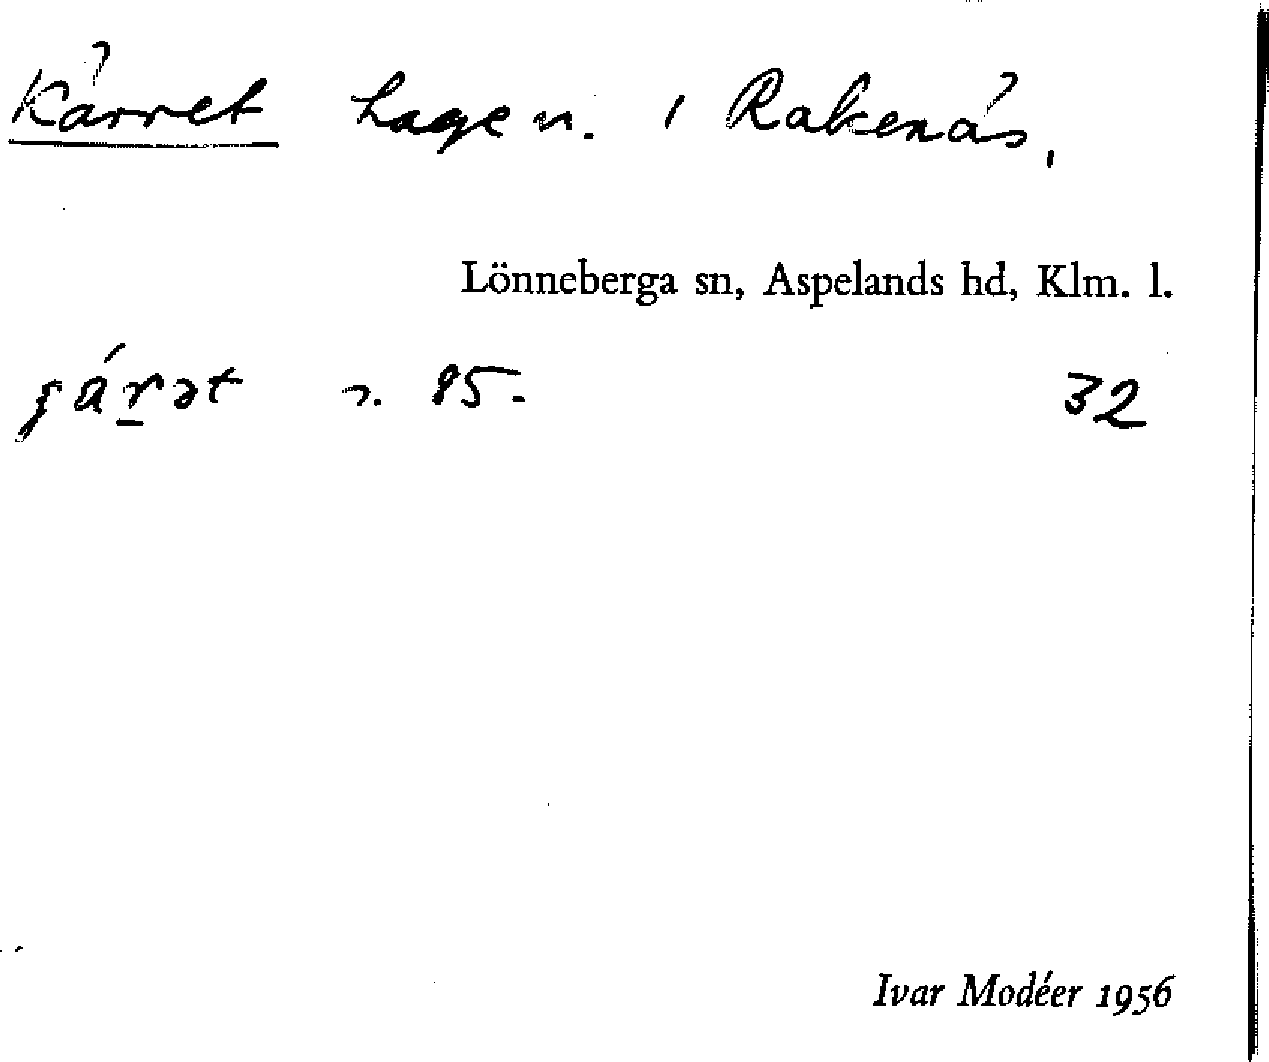 Kärret hage n. i Rakenäs,
Lönneberga sn, Aspelands hd, Klm. l.
n. 85. 32
Ivar Modéer 1956